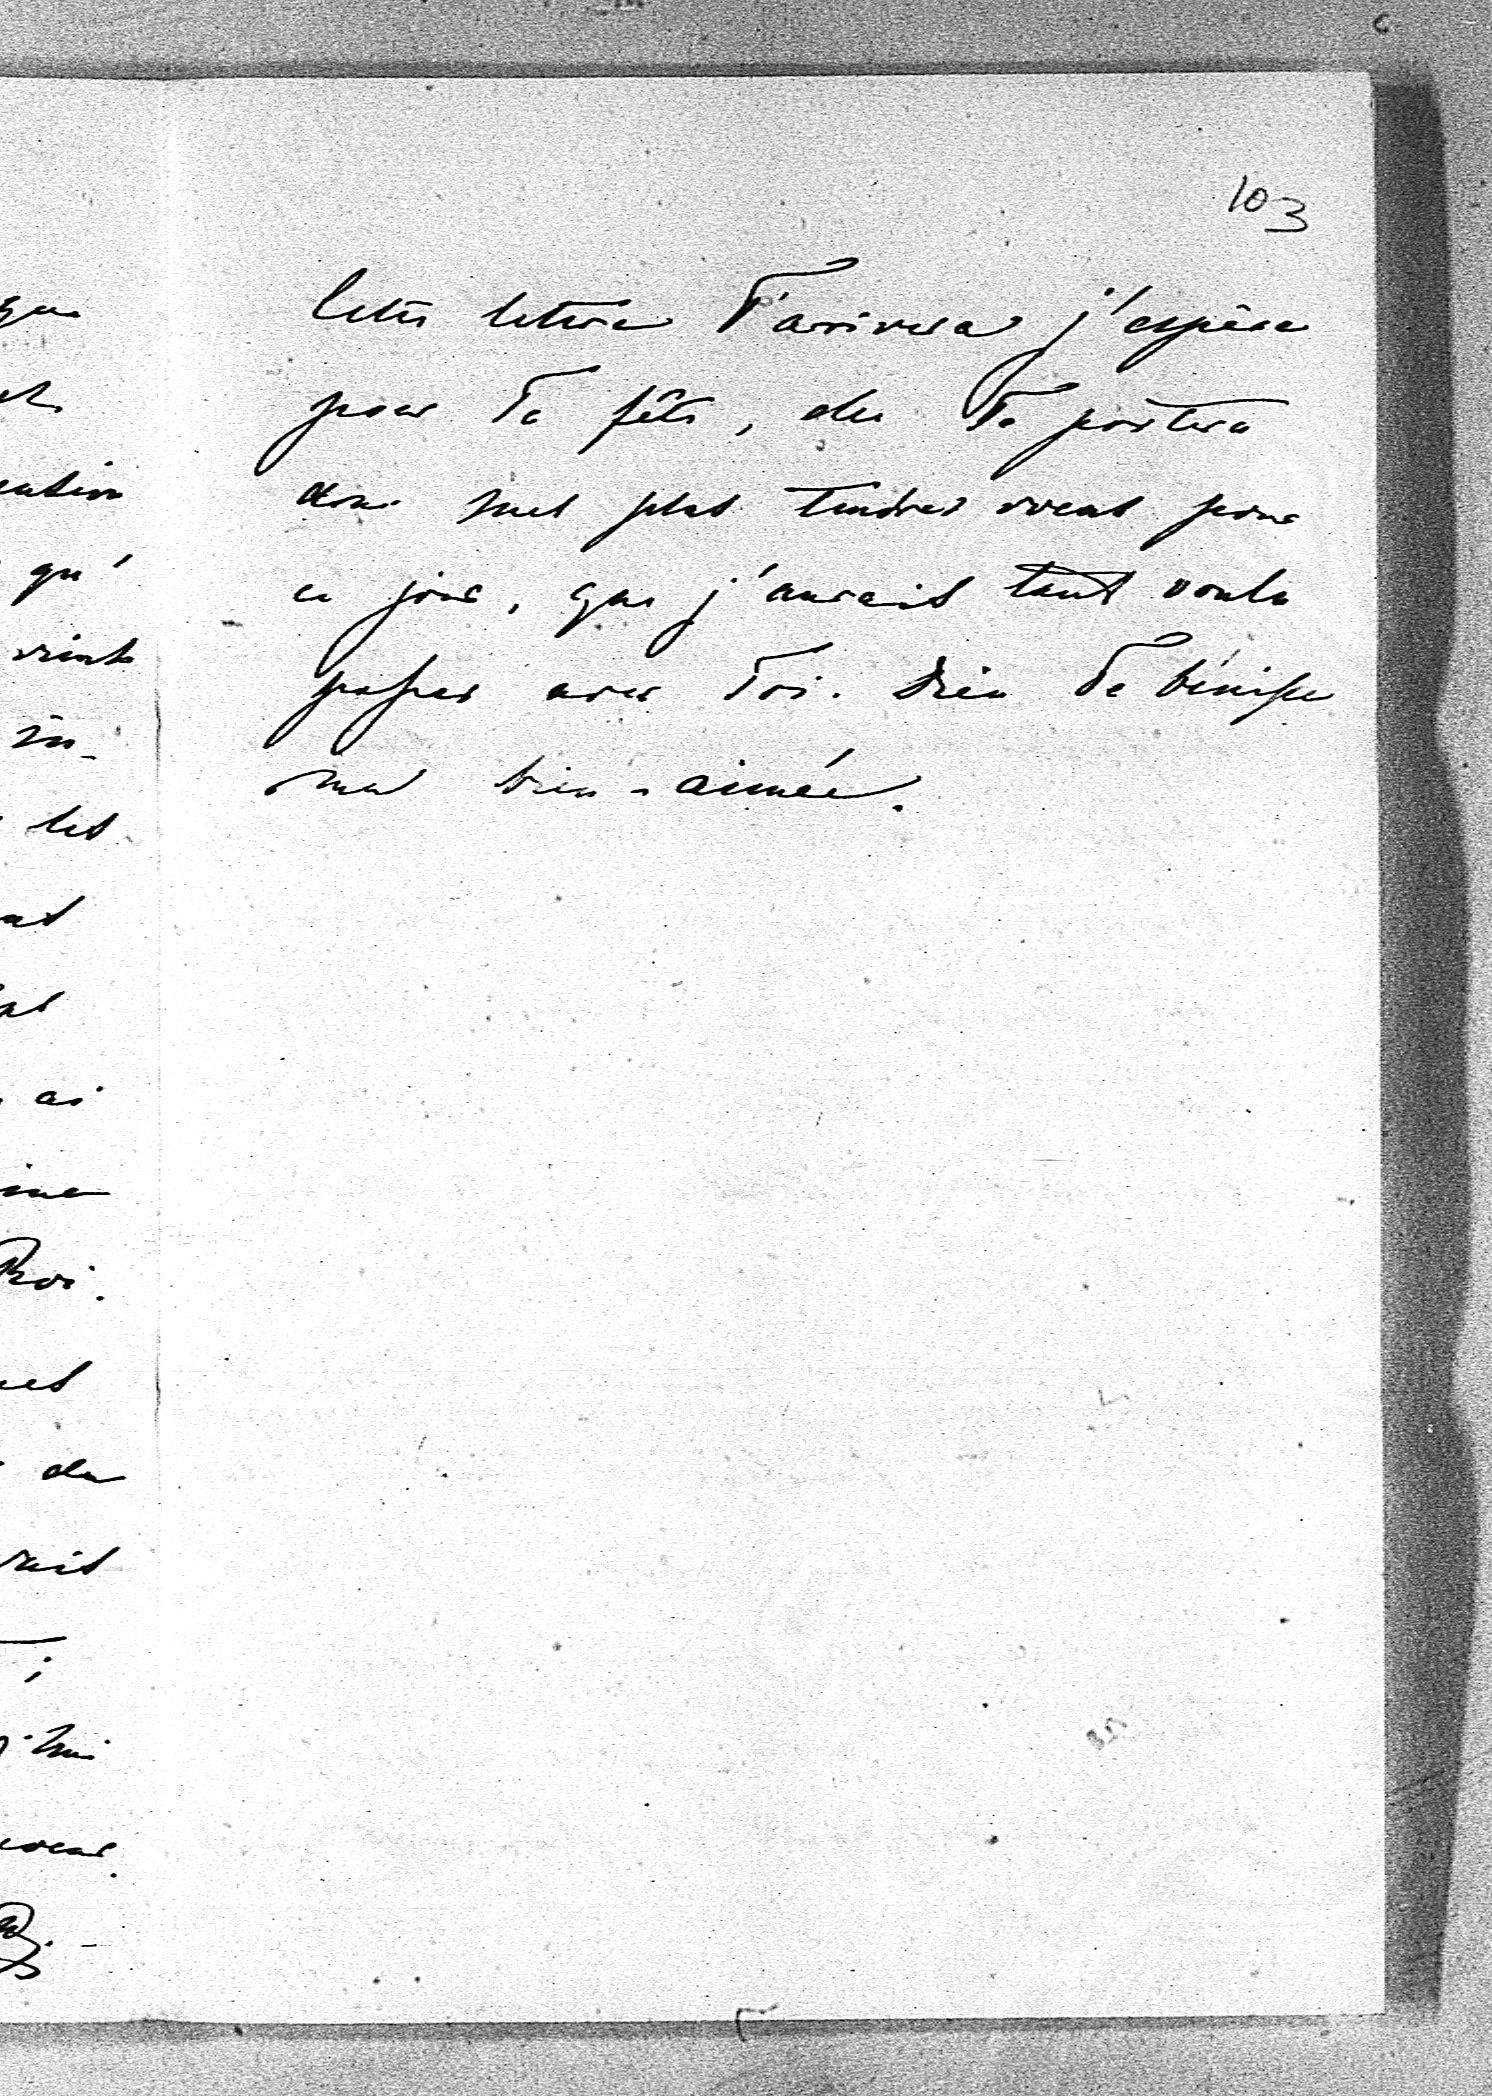 103
Cette lettre T'arrivera j'espère
pour Ta fête, elle Te portera
donc mes plus tendres voeux pour
ce jour, que j'aurais tant voulu
passer avec Toi. Dieu Te bénisse
ma bien-aimée.
que
qu'
vint
in-
les
ai
Roi.
de